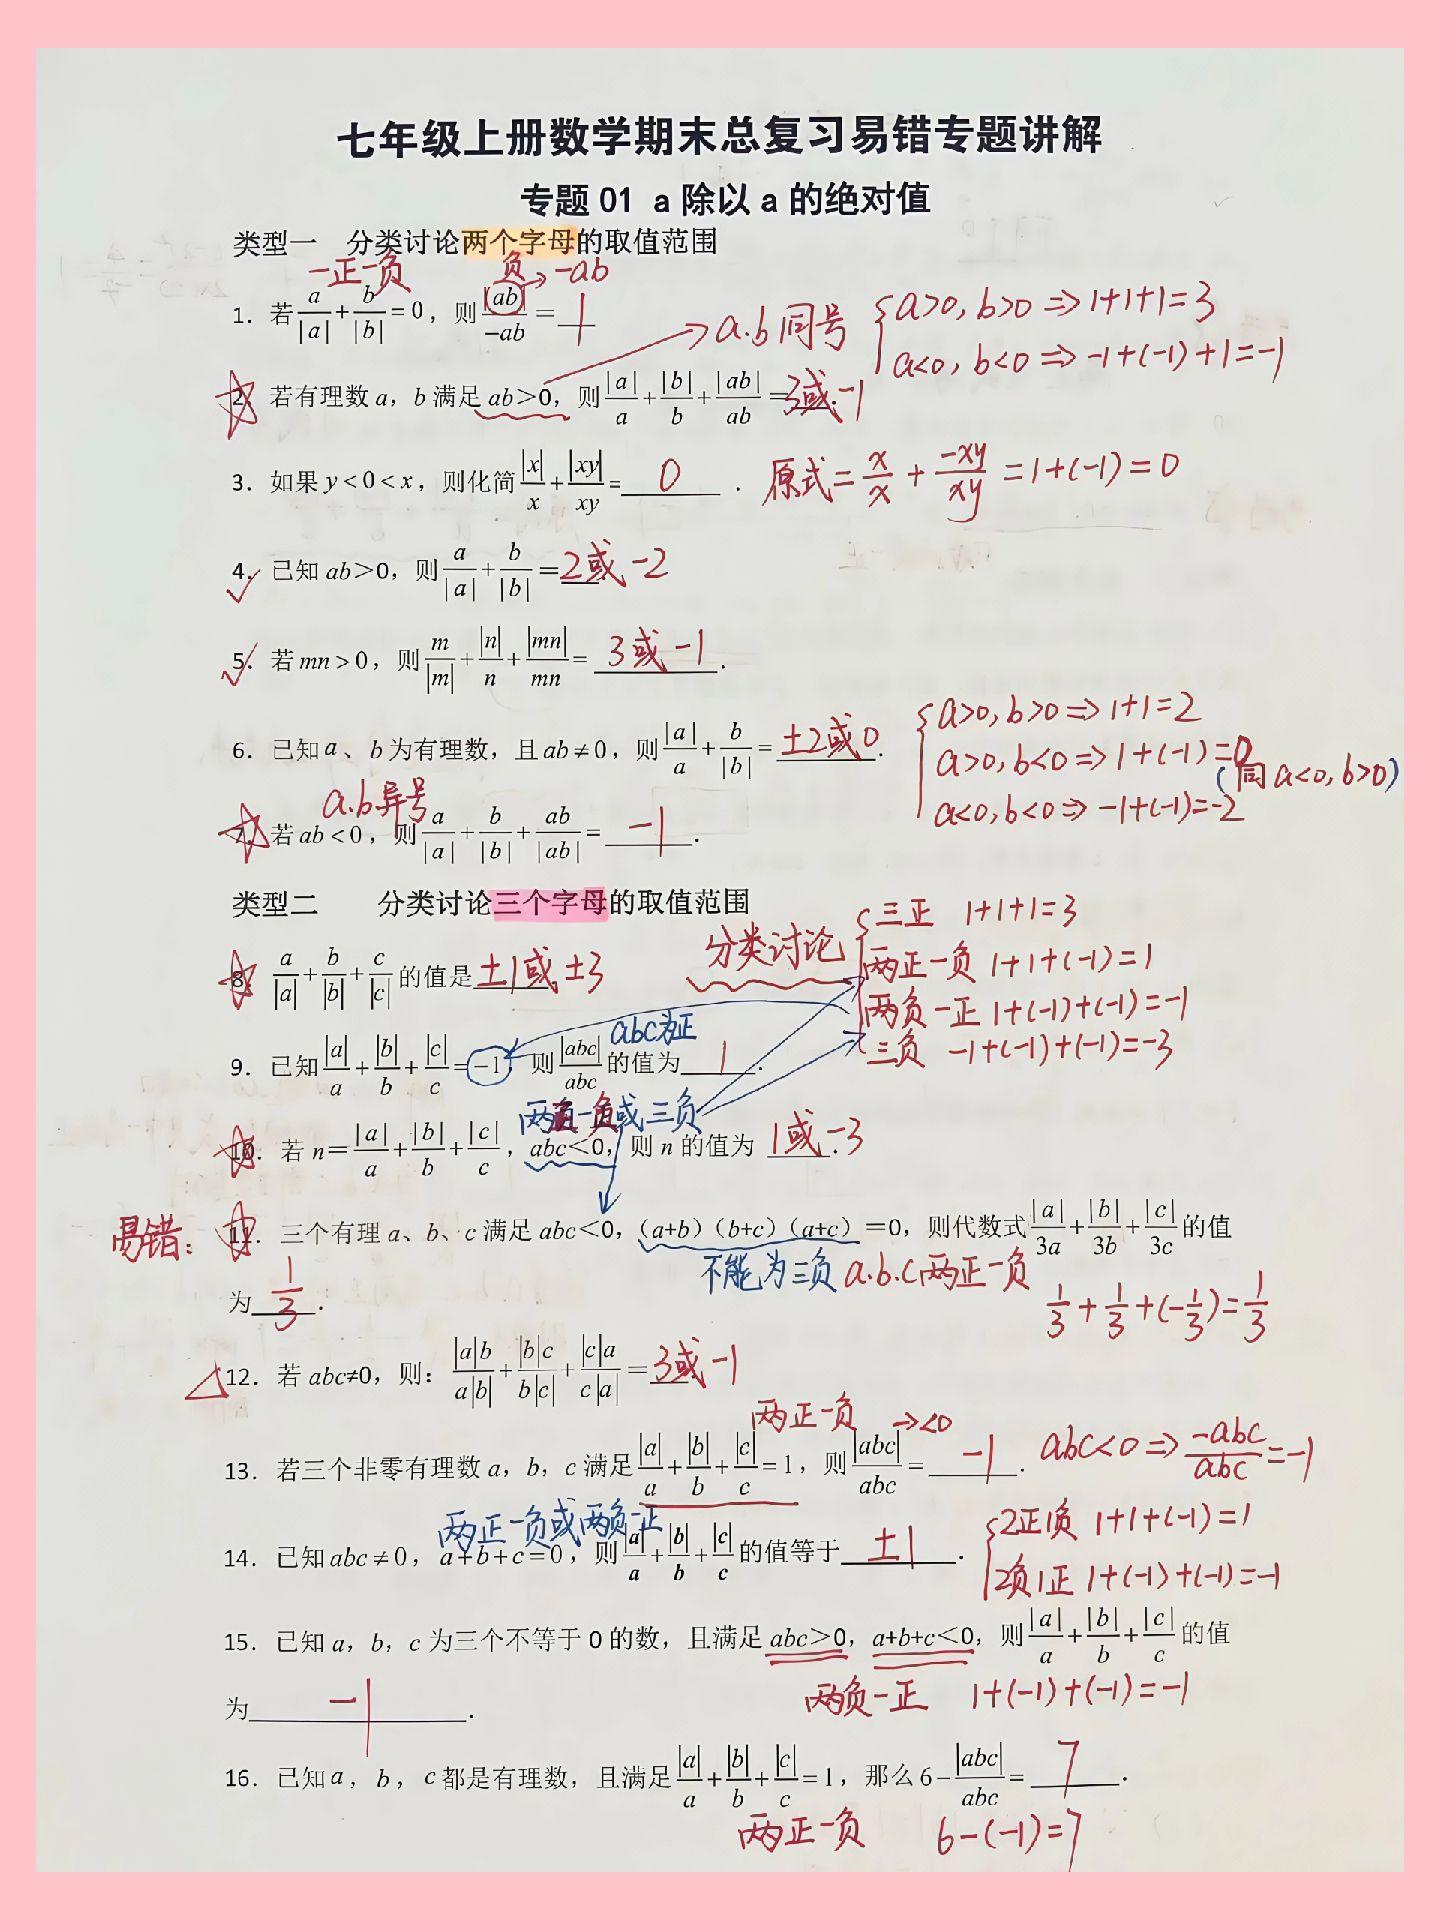 七年级上册数学期末总复习易错专题讲解
专题 01 a 除以 a 的绝对值
类型一 分类讨论两个字母的取值范围
一正一负 负→-ab
1. 若a/|a|+b/|b|=0，则|ab|/-ab=1
→a.b同号 {a>0, b>0⇒1+1+1=3
a<0, b<0⇒-1+(-1)+1=-1
2. 若有理数 a，b 满足 ab>0，则|a|/a+|b|/b+|ab|/ab=3或-1.
3. 如果 y<0<x，则化简|x|/x+|xy|/xy=0. 原式=x/x+-xy/xy=1+(-1)=0
4. 已知 ab>0，则a/|a|+b/|b|=2或-2
5. 若mn>0，则m/|m|+|n|/n+|mn|/mn=3或-1.
{a>0, b>0⇒1+1=2
6. 已知a、b为有理数，且ab≠0，则|a|/a+b/|b|=±2或0. a>0, b<0⇒1+(-1)=0
(同a<0, b>0)
a<0, b<0⇒-1+(-1)=-2
a.b异号
7. 若ab<0，则a/|a|+b/|b|+ab/|ab|=-1.
类型二 分类讨论三个字母的取值范围
分类讨论 {三正 1+1+1=3
两正一负 1+1+(-1)=1
两负一正 1+(-1)+(-1)=-1
三负 -1+(-1)+(-1)=-3
8. a/|a|+b/|b|+c/|c|的值是±1或±3
abc为正
9. 已知|a|/a+|b|/b+|c|/c=-1，则|abc|/abc的值为1.
两正一负或三负
10. 若 n=|a|/a+|b|/b+|c|/c，abc<0，则 n 的值为 1或-3.
易错：11. 三个有理 a、b、c 满足 abc<0，(a+b)(b+c)(a+c)=0，则代数式|a|/3a+|b|/3b+|c|/3c的值
不能为三负 a.b.c两正一负
为1/3. 1/3+1/3+(-1/3)=1/3
12. 若 abc≠0，则：|a|b/a|b|+|b|c/b|c|+|c|a/c|a|=3或-1
两正一负 →<0
13. 若三个非零有理数 a，b，c 满足|a|/a+|b|/b+|c|/c=1，则|abc|/abc=-1. abc<0⇒-abc/abc=-1
两正一负或两负一正
14. 已知abc≠0，a+b+c=0，则|a|/a+|b|/b+|c|/c的值等于±1. {2正1负 1+1+(-1)=1
2负1正 1+(-1)+(-1)=-1
15. 已知 a，b，c 为三个不等于 0 的数，且满足 abc>0，a+b+c<0，则|a|/a+|b|/b+|c|/c的值
两负一正 1+(-1)+(-1)=-1
为-1.
16. 已知a，b，c都是有理数，且满足|a|/a+|b|/b+|c|/c=1，那么6-|abc|/abc=7.
两正一负 6-(-1)=7